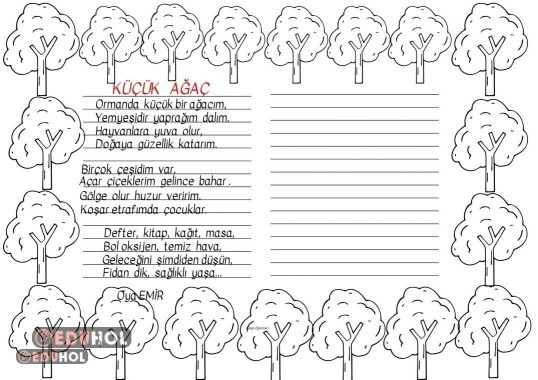 KÜÇÜK AĞAÇ
Ormanda küçük bir ağacım,
Yemyeşidir yaprağım dalım.
Hayvanlara yuva olur,
Doğaya güzellik katarım.
Birçok çeşidim var,
Açar çiçeklerim gelince bahar.
Gölge olur huzur veririm.
Koşar etrafımda çocuklar.
Defter, kitap, kağıt, masa,
Bol oksijen, temiz hava,
Geleceğini şimdiden düşün,
Fidan dik, sağlıklı yaşa...
Oya EMİR
EDUHOL
EDUHOL